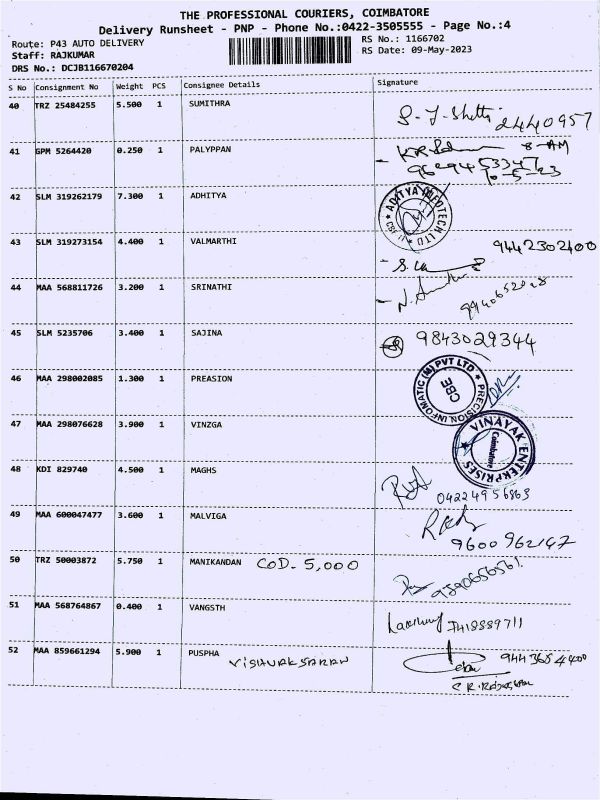 THE PROFESSIONAL COURIERS, COIMBATORE
Delivery Runsheet - PNP - Phone No.:0422-3505555 - Page No.:4
Route: P43 AUTO DELIVERY RS No.: 1166702
Staff: RAJKUMAR RS Date: 09-May-2023
DRS No.: DCJB116670204
S No Consignment No Weight PCS Consignee Details Signature
40 TRZ 25484255 5.500 1 SUMITHRA 2440957
41 GPM 5264420 0.250 1 PALYPPAN 8-AM
10-5-23
42 SLM 319262179 7.300 1 ADHITYA ADITYA INFOTECH LTD
43 SLM 319273154 4.400 1 VALMARTHI 9442302400
44 MAA 568811726 3.200 1 SRINATHI
45 SLM 5235706 3.400 1 SAJINA 9843029344
46 MAA 298002085 1.300 1 PREASION PRECISION INFOMATIC (M) PVT LTD CBE
47 MAA 298076628 3.900 1 VINZGA VINAYAK ENTERPRISES Coimbatore
48 KDI 829740 4.500 1 MAGHS
49 MAA 600047477 3.600 1 MALVIGA 9600962147
50 TRZ 50003872 5.750 1 MANIKANDAN COD- 5,000
51 MAA 568764867 0.400 1 VANGSTH
52 MAA 859661294 5.900 1 PUSPHA